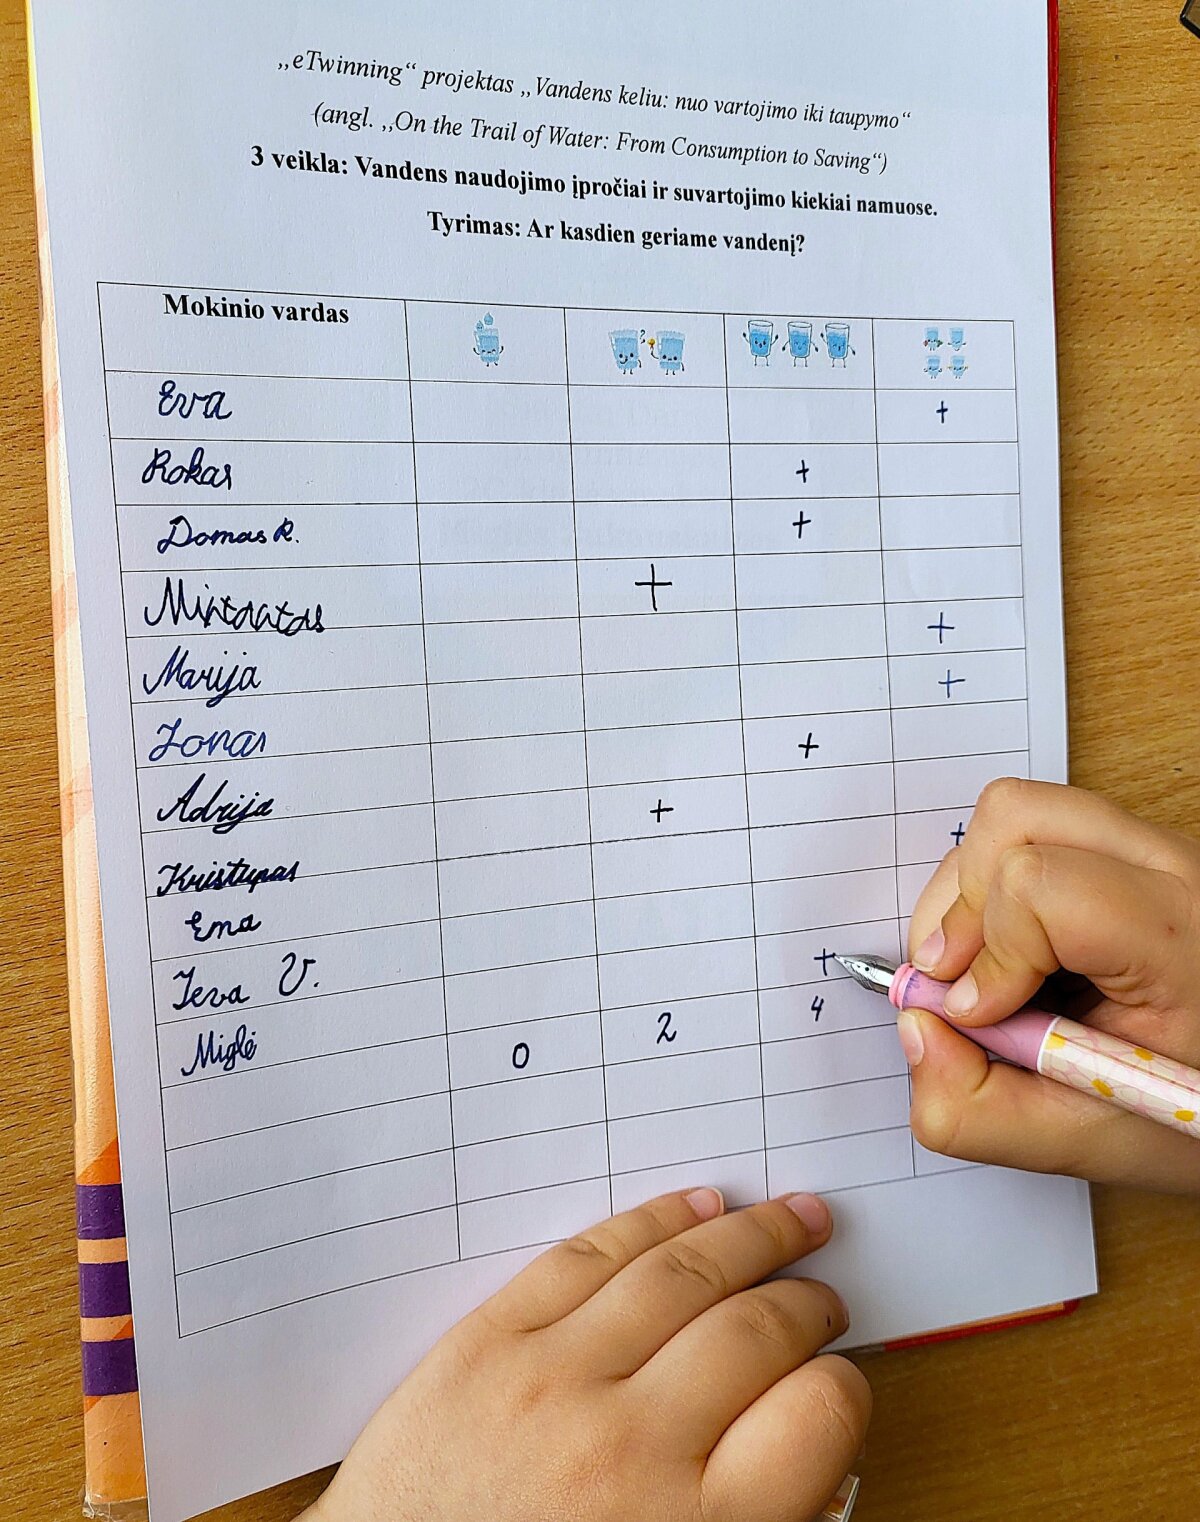 „eTwinning“ projektas „Vandens keliu: nuo vartojimo iki taupymo“
(angl. „On the Trail of Water: From Consumption to Saving“)
3 veikla: Vandens naudojimo įpročiai ir suvartojimo kiekiai namuose.
Tyrimas: Ar kasdien geriame vandenį?
Mokinio vardas
Eva +
Rokas +
Domas R. +
Mintautas +
Marija +
Jonas +
Adrija +
Kristupas +
Ema +
Ieva V.
Miglė +
0 2 4